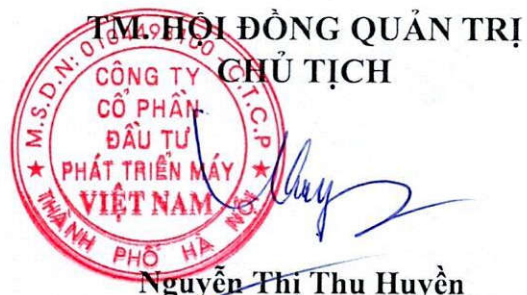 TM. HỘI ĐỒNG QUẢN TRỊ
CHỦ TỊCH
CÔNG TY
CỔ PHẦN
ĐẦU TƯ
PHÁT TRIỂN MÁY
VIỆT NAM
THÀNH PHỐ HÀ NỘI
Nguyễn Thị Thu Huyền